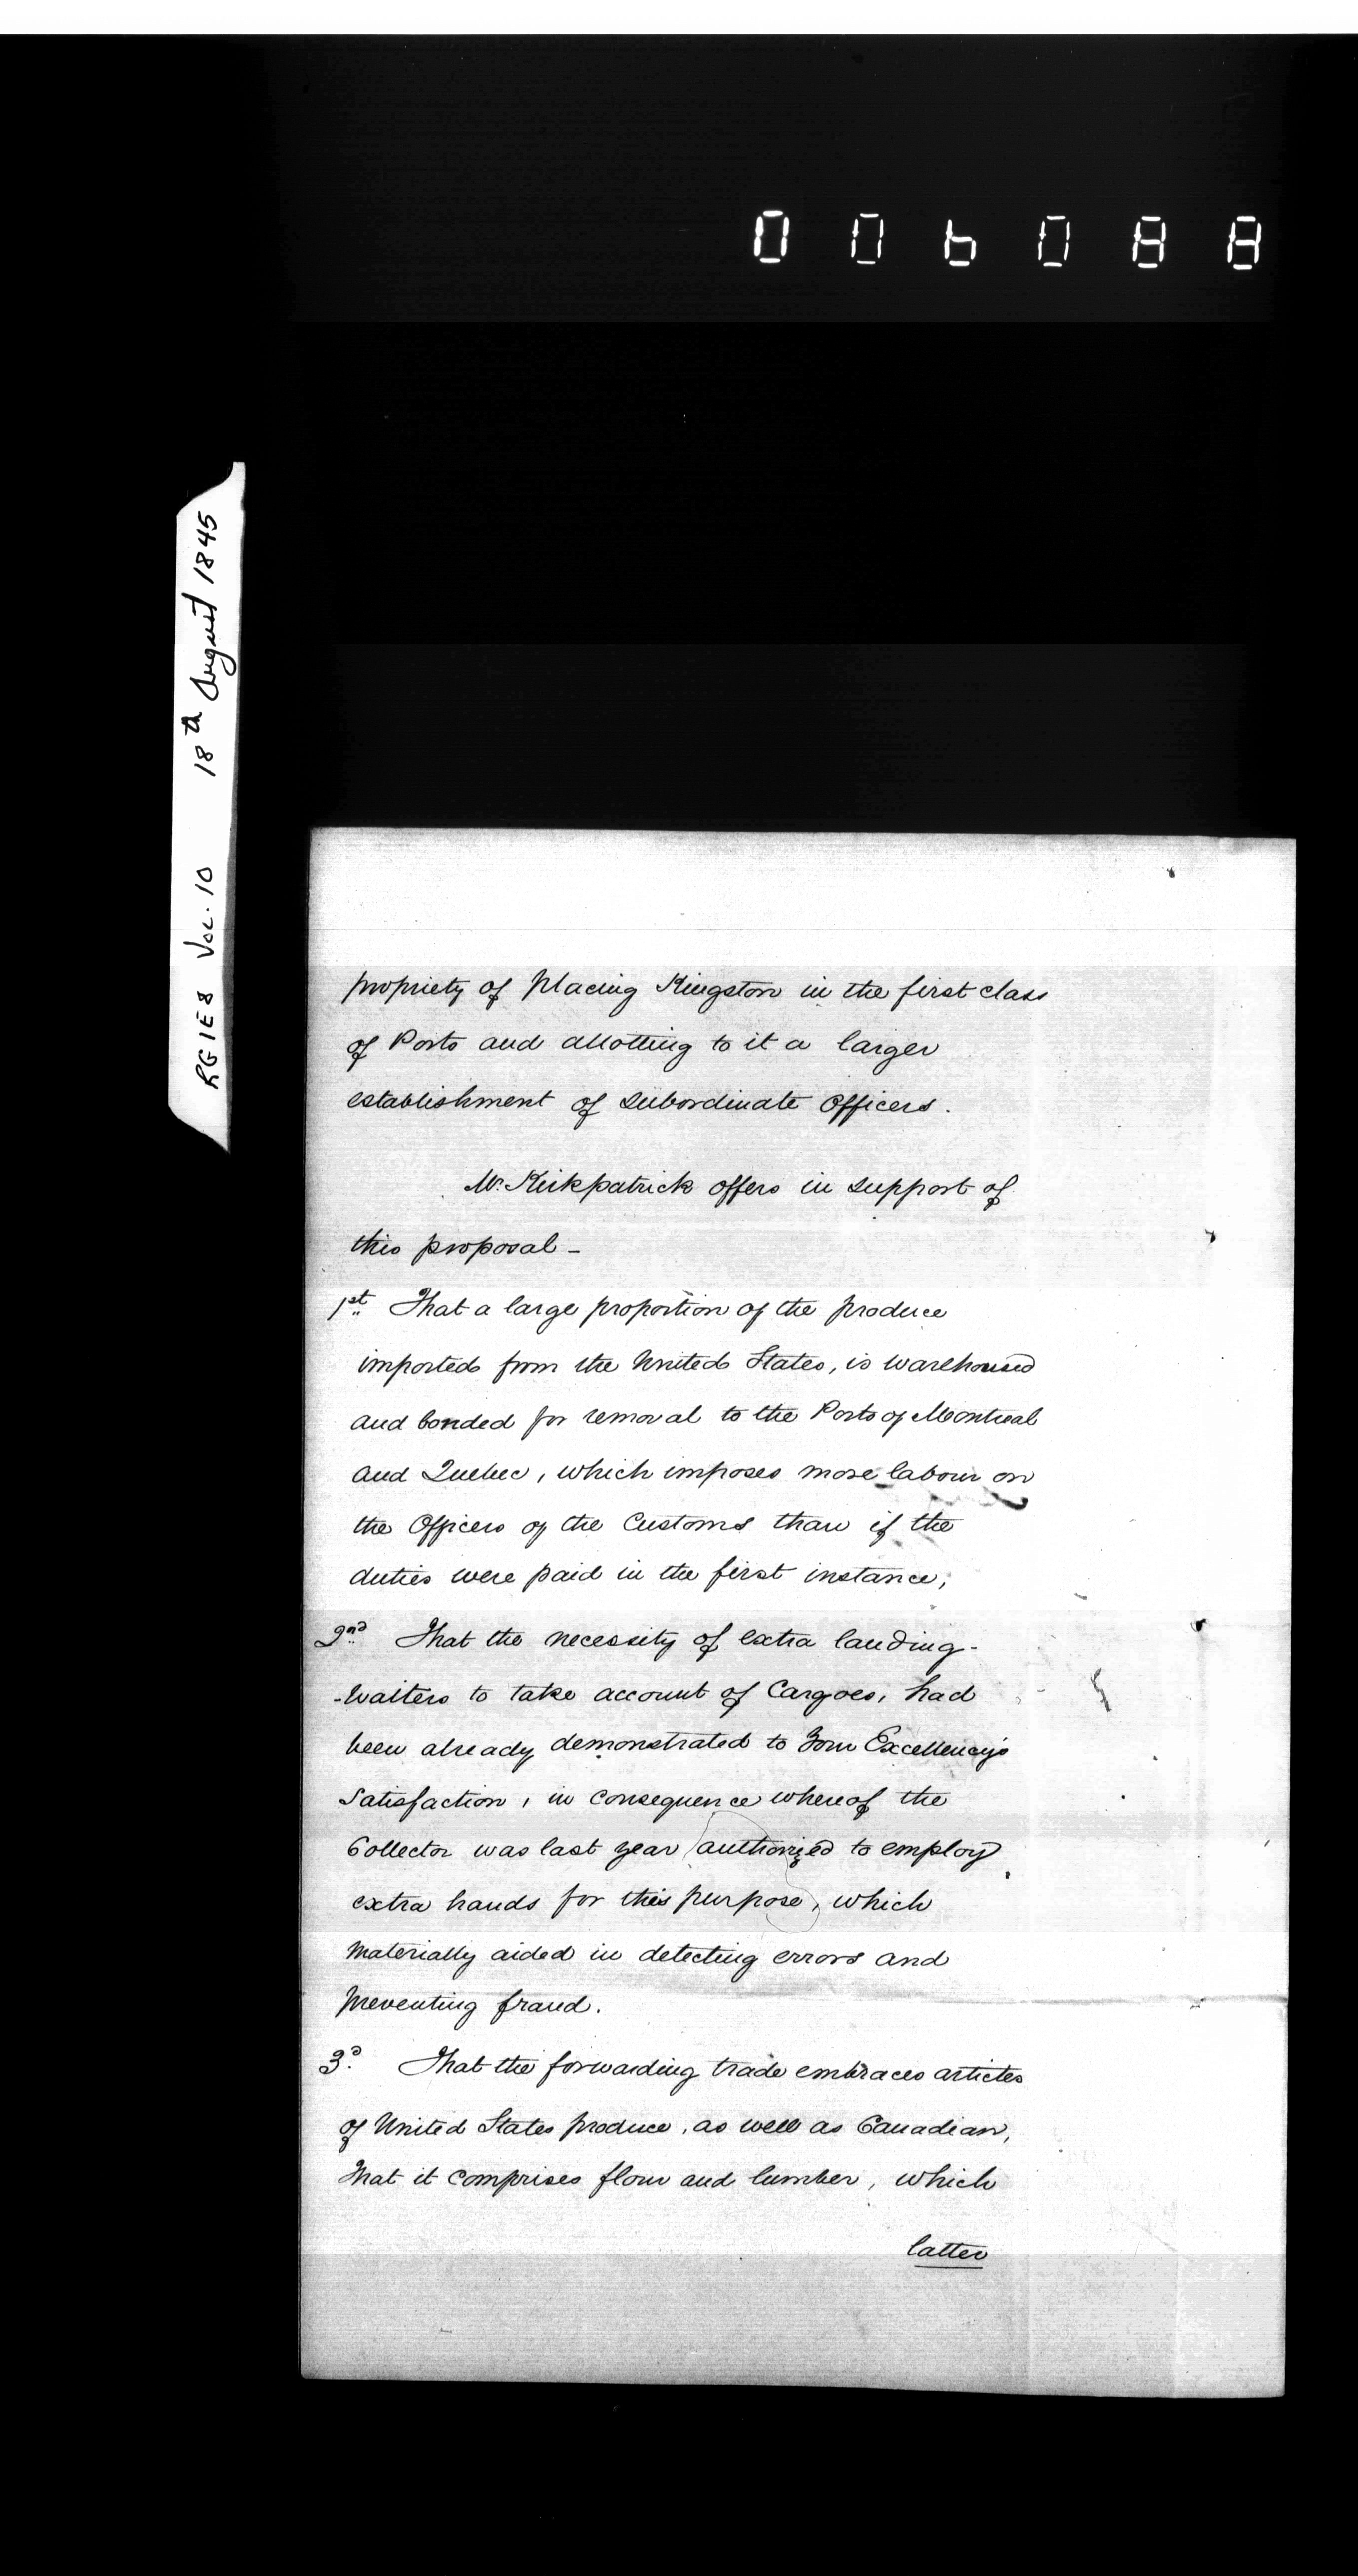 006088
RG1E8 Vol. 10 18th August 1845
propriety of placing Kingston in the first class
of Ports and allotting to it a larger
establishment of subordinate Officers.
Mr. Kirkpatrick offers in support of
this proposal –
1st That a large proportion of the produce
imported from the United States, is warehoused
and bonded for removal to the Ports of Montreal
and Quebec, which imposes more labour on
the Officers of the Customs than if the
duties were paid in the first instance,
2nd That the necessity of extra landing-
-waiters to take account of Cargoes, had
been already demonstrated to Your Excellency's
satisfaction, in consequence whereof the
Collector was last year authorized to employ
extra hands for this purpose, which
materially aided in detecting errors and
preventing fraud.
3d. That the forwarding trade embraces articles
of United States produce, as well as Canadian,
that it comprises flour and lumber, which
latter